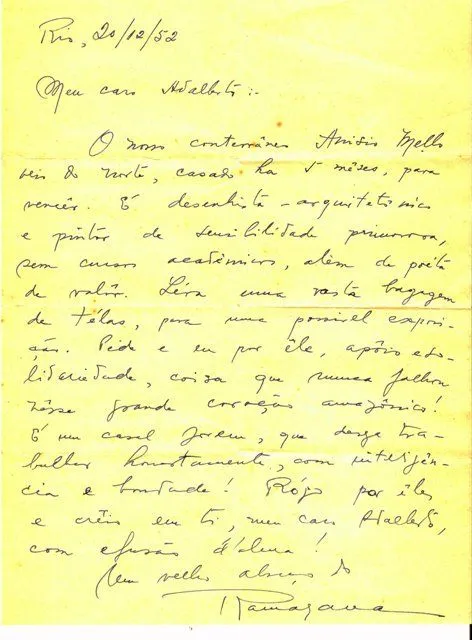 Rio, 20/12/52
Meu caro Adalberto:-
O nosso conterrâneo Anisio Mello
veio do norte, casado ha 5 mêses, para
vencêr. É desenhista-arquitetônico
e pintor de sensibilidade primorosa,
sem cursos acadêmicos, além de poéta
de valôr. Léva uma vasta bagagem
de télas, para uma possivel exposi-
ção. Péde e eu por êle, apôio e so-
lidariedade, coisa que nunca falhou
nêsse grande coração amazônico!
É um casal jovem, que deseja tra-
balhar honestamente, com inteligên-
cia e bondade! Rógo por êles
e crêio em ti, meu caro Adalberto,
com efusão d'alma!
Um velho abraço do
Ramayana